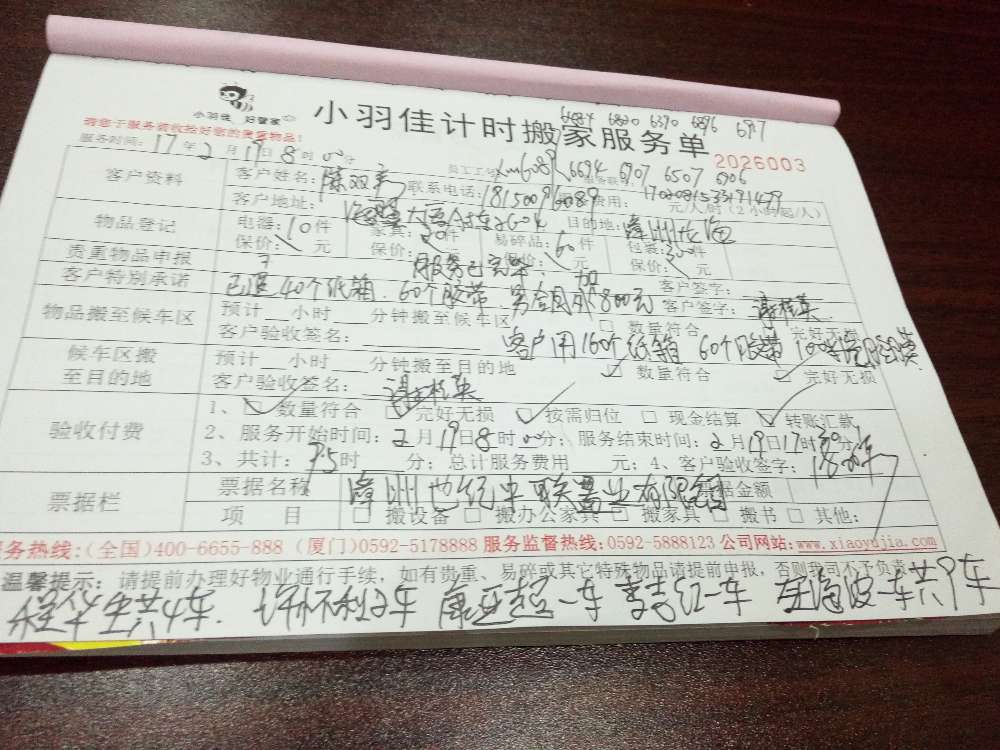 小羽佳 好管家
小羽佳计时搬家服务单
6820 6370 6896 6917
请您于服务前收拾好您的贵重物品!
2026003
服务时间: 17年2月19日8时00分 员工工号: xm6089 6694 6907 6507 6906
客户资料 客户姓名: 联系电话: 18150096089 费用: 元/人/时 (2小时起/人)
客户地址: 目的地: 漳州龙海
物品登记 电器: 10件 家具: 件 易碎品: 60件 包装: 30件
保价: 元 保价: 元 保价: 元 保价: 元
贵重物品申报 无 服务已完毕. 加 客户签字:
客户特别承诺 已退40个纸箱. 60个胶带. 另合同外800元 客户签字:
物品搬至候车区 预计 小时 分钟搬至候车区 □ 数量符合 □ 完好无损
客户验收签名: 客户用160个纸箱 60个胶带
候车区搬至目的地 预计 小时 分钟搬至目的地 ☑ 数量符合 ☑ 完好无损
客户验收签名:
验收付费 1、☑ 数量符合 □ 完好无损 ☑ 按需归位 □ 现金结算 ☑ 转账汇款
2、服务开始时间: 2月19日8时00分; 服务结束时间: 2月19日17时30分
3、共计: 时 分; 总计服务费用 元; 4、客户验收签字:
票据栏 票据名称 漳州世纪中联置业有限公司 票据金额
项 目 □ 搬设备 □ 搬办公家具 □ 搬家具 □ 搬书 □ 其他:
服务热线:(全国)400-6655-888 (厦门)0592-5178888 服务监督热线:0592-5888123 公司网站:www.xiaoyujia.com
温馨提示: 请提前办理好物业通行手续, 如有贵重、易碎或其它特殊物品请提前申报, 否则我司不予负责
共4车. 2车 一车 李志红一车 一车共9车